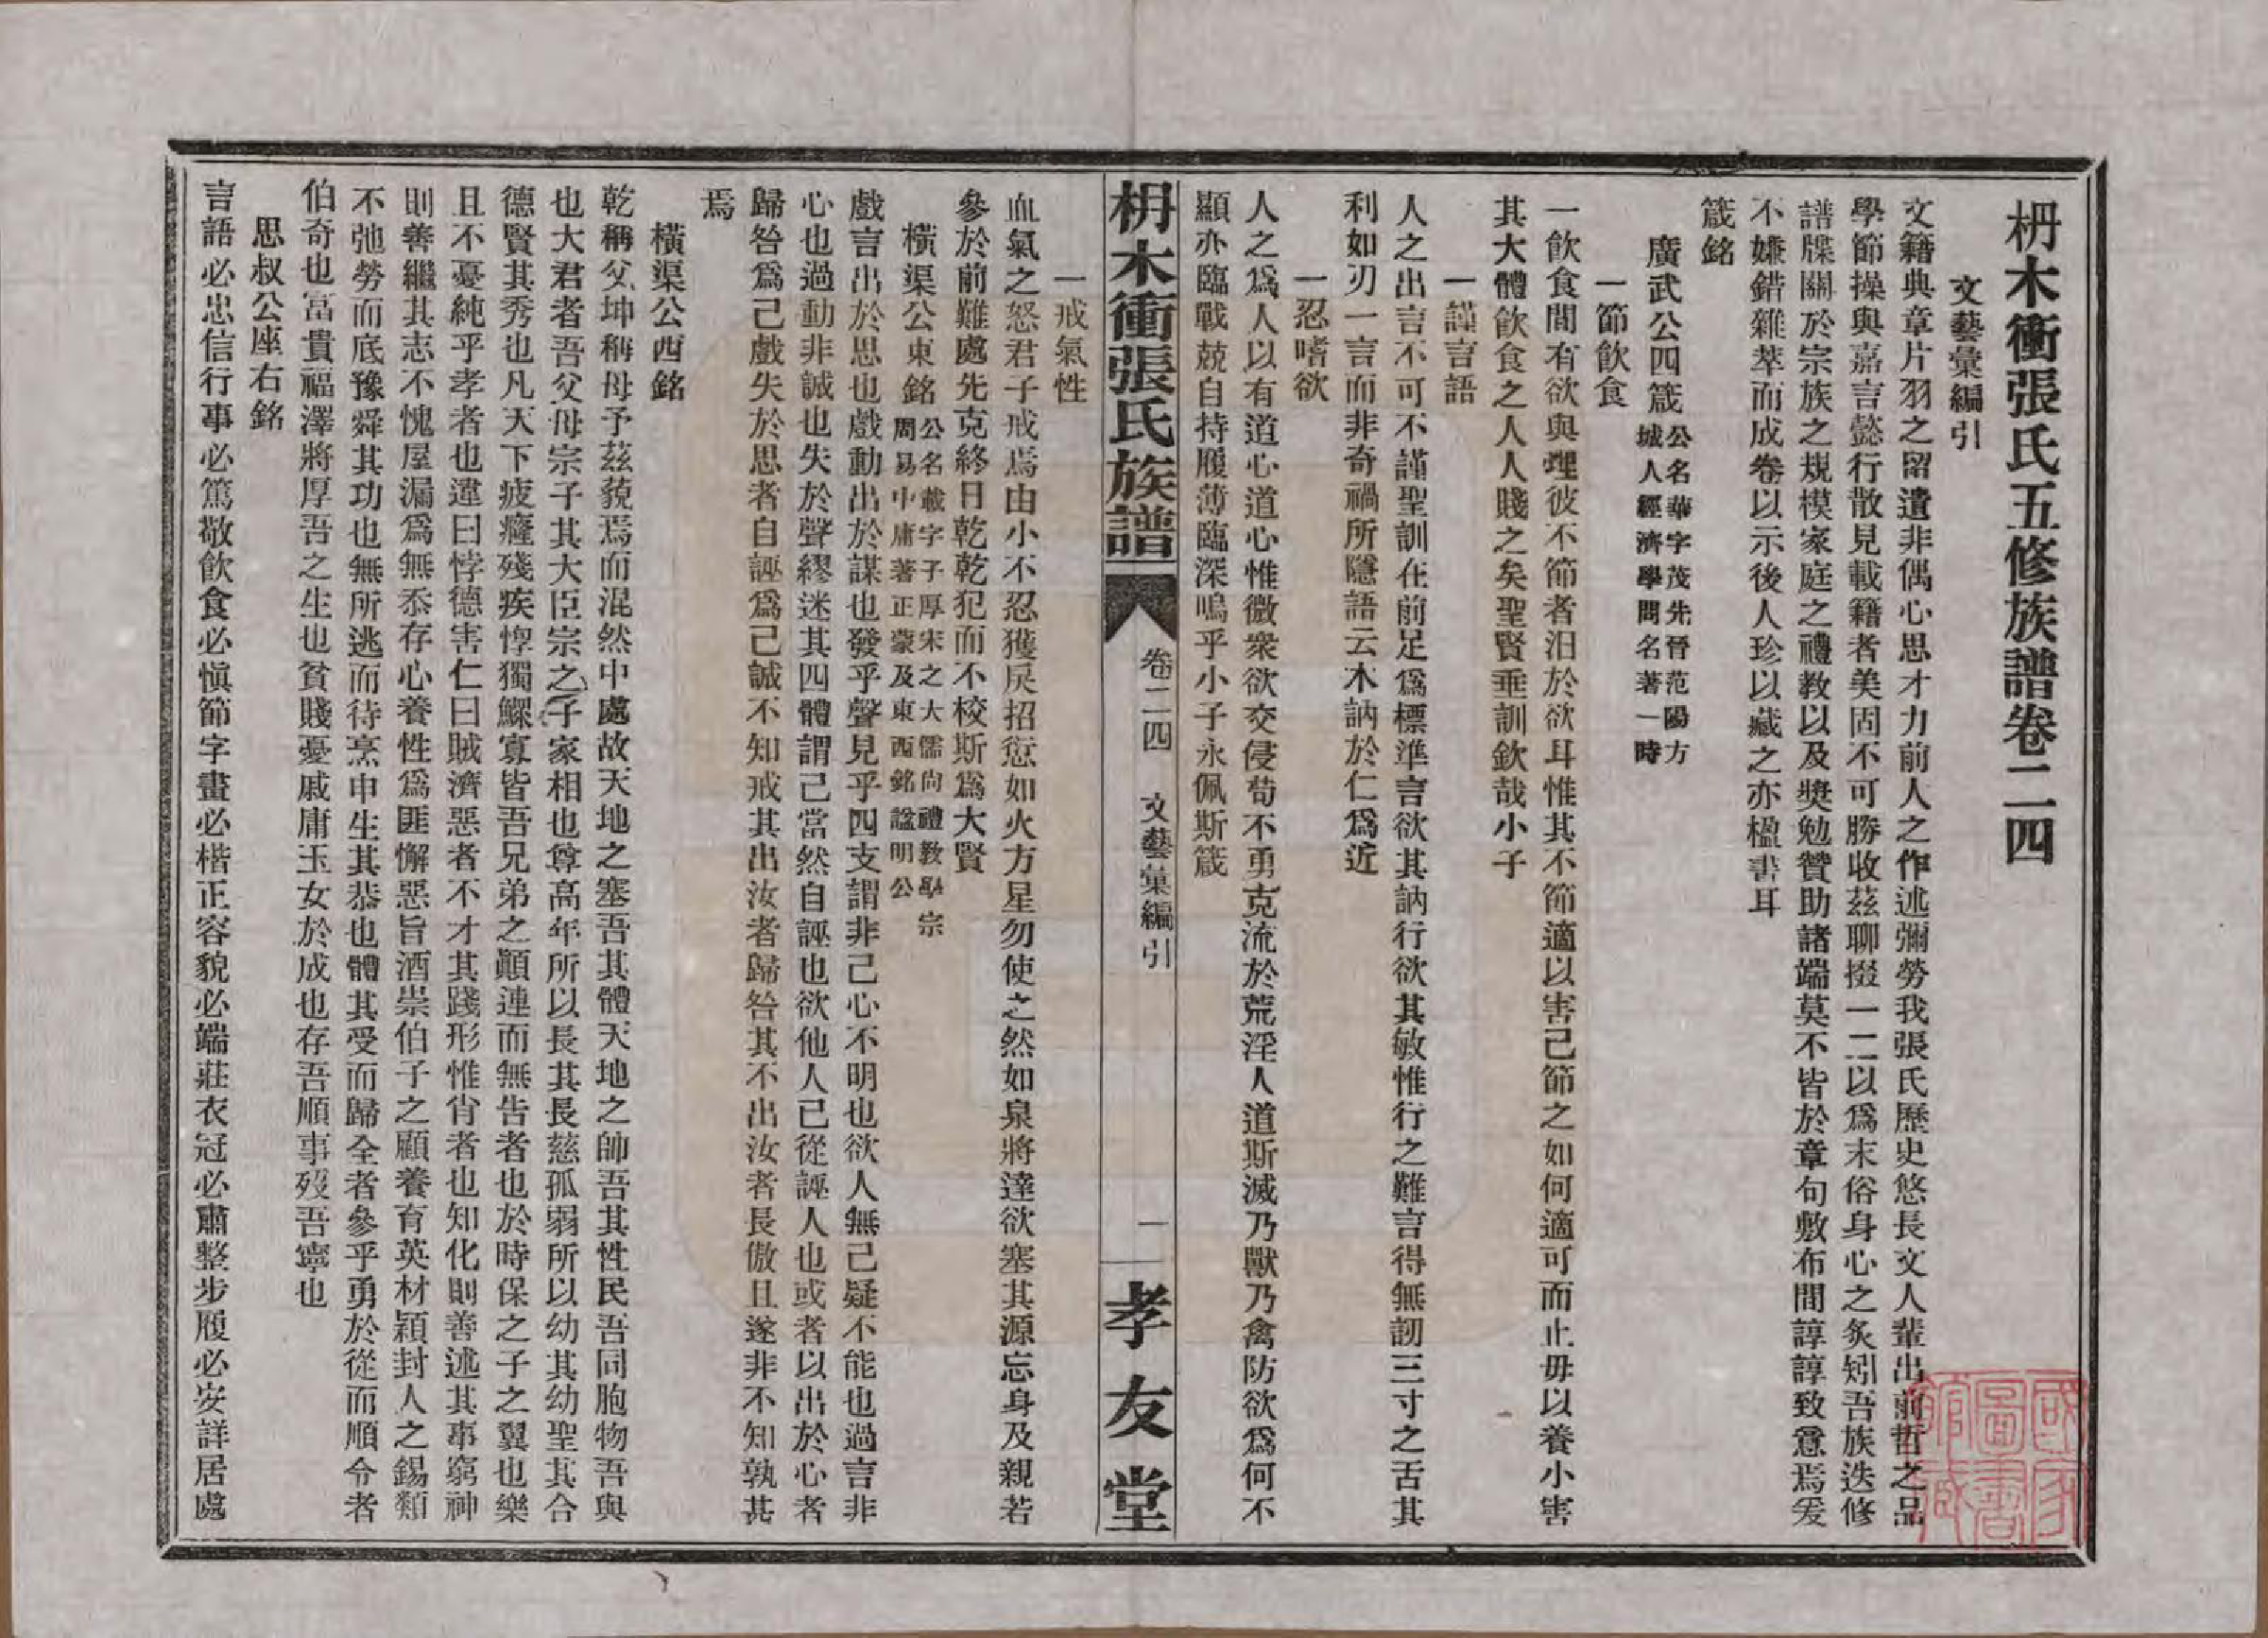 枬木衝張氏五修族譜卷二四
文藝彙編引
文籍典章片羽之留遺非偶心思才力前人之作述彌勞我張氏歷史悠長文人輩出前哲之品
學節操與嘉言懿行散見載籍者美固不可勝收茲聊掇一二以爲末俗身心之炙矧吾族迭修
譜牒關於宗族之規模家庭之禮教以及獎勉贊助諸端莫不皆於章句敷布間諄諄致意焉爰
不嫌錯雜萃而成卷以示後人珍以藏之亦楹書耳
箴銘
廣武公四箴公名華字茂先晉范陽方城人經濟學問名著一時
一節飲食
一飲食間有欲與理彼不節者汨於欲耳惟其不節適以害己節之如何適可而止毋以養小害
其大體飲食之人人賤之矣聖賢垂訓欽哉小子
一謹言語
人之出言不可不謹聖訓在前足爲標準言欲其訥行欲其敏惟行之難言得無訒三寸之舌其
利如刃一言而非奇禍所隱語云木訥於仁爲近
一忍嗜欲
人之爲人以有道心道心惟微衆欲交侵苟不勇克流於荒淫人道斯滅乃獸乃禽防欲爲何不
顯亦臨戰兢自持履薄臨深嗚乎小子永佩斯箴
枬木衝張氏族譜
卷二四
文藝彙編引
一
孝友堂
一戒氣性
血氣之怒君子戒焉由小不忍獲戾招愆如火方星勿使之然如泉將達欲塞其源忘身及親若
參於前難處先克終日乾乾犯而不校斯爲大賢
橫渠公東銘公名載字子厚宋之大儒尙禮教學宗周易中庸著正蒙及東西銘諡明公
戲言出於思也戲動出於謀也發乎聲見乎四支謂非己心不明也欲人無己疑不能也過言非
心也過動非誠也失於聲繆迷其四體謂己當然自誣也欲他人己從誣人也或者以出於心者
歸咎爲己戲失於思者自誣爲己誠不知戒其出汝者歸咎其不出汝者長傲且遂非不知孰甚
焉
橫渠公西銘
乾稱父坤稱母予茲藐焉而混然中處故天地之塞吾其體天地之帥吾其性民吾同胞物吾與
也大君者吾父母宗子其大臣宗之子家相也尊高年所以長其長慈孤弱所以幼其幼聖其合
德賢其秀也凡天下疲癃殘疾惸獨鰥寡皆吾兄弟之顚連而無告者也於時保之子之翼也樂
且不憂純乎孝者也違曰悖德害仁曰賊濟惡者不才其踐形惟肖者也知化則善述其事窮神
則善繼其志不愧屋漏爲無忝存心養性爲匪懈惡旨酒崇伯子之顧養育英材穎封人之錫類
不弛勞而底豫舜其功也無所逃而待烹申生其恭也體其受而歸全者參乎勇於從而順令者
伯奇也富貴福澤將厚吾之生也貧賤憂戚庸玉女於成也存吾順事歿吾寧也
思叔公座右銘
言語必忠信行事必篤敬飲食必愼節字畫必楷正容貌必端莊衣冠必肅整步履必安詳居處
國家圖書館藏